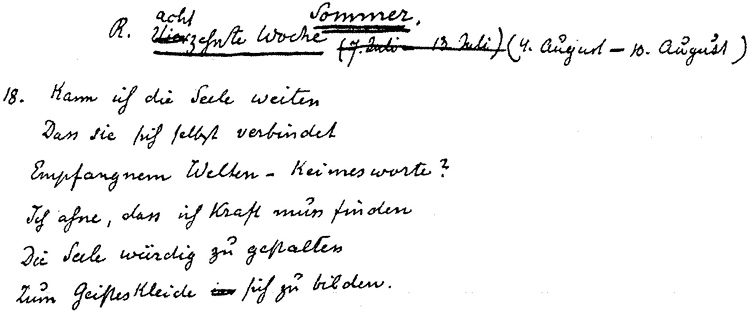 Sommer.
R. achtzehnte Woche (7. Juli – 13 Juli) (4. August – 10. August)
18. Kann ich die Seele weiten
Dass sie sich selbst verbindet
Empfangnem Welten-Keimesworte?
Ich ahne, dass ich Kraft muss finden
Die Seele würdig zu gestalten
Zum Geisteskleide sich zu bilden.